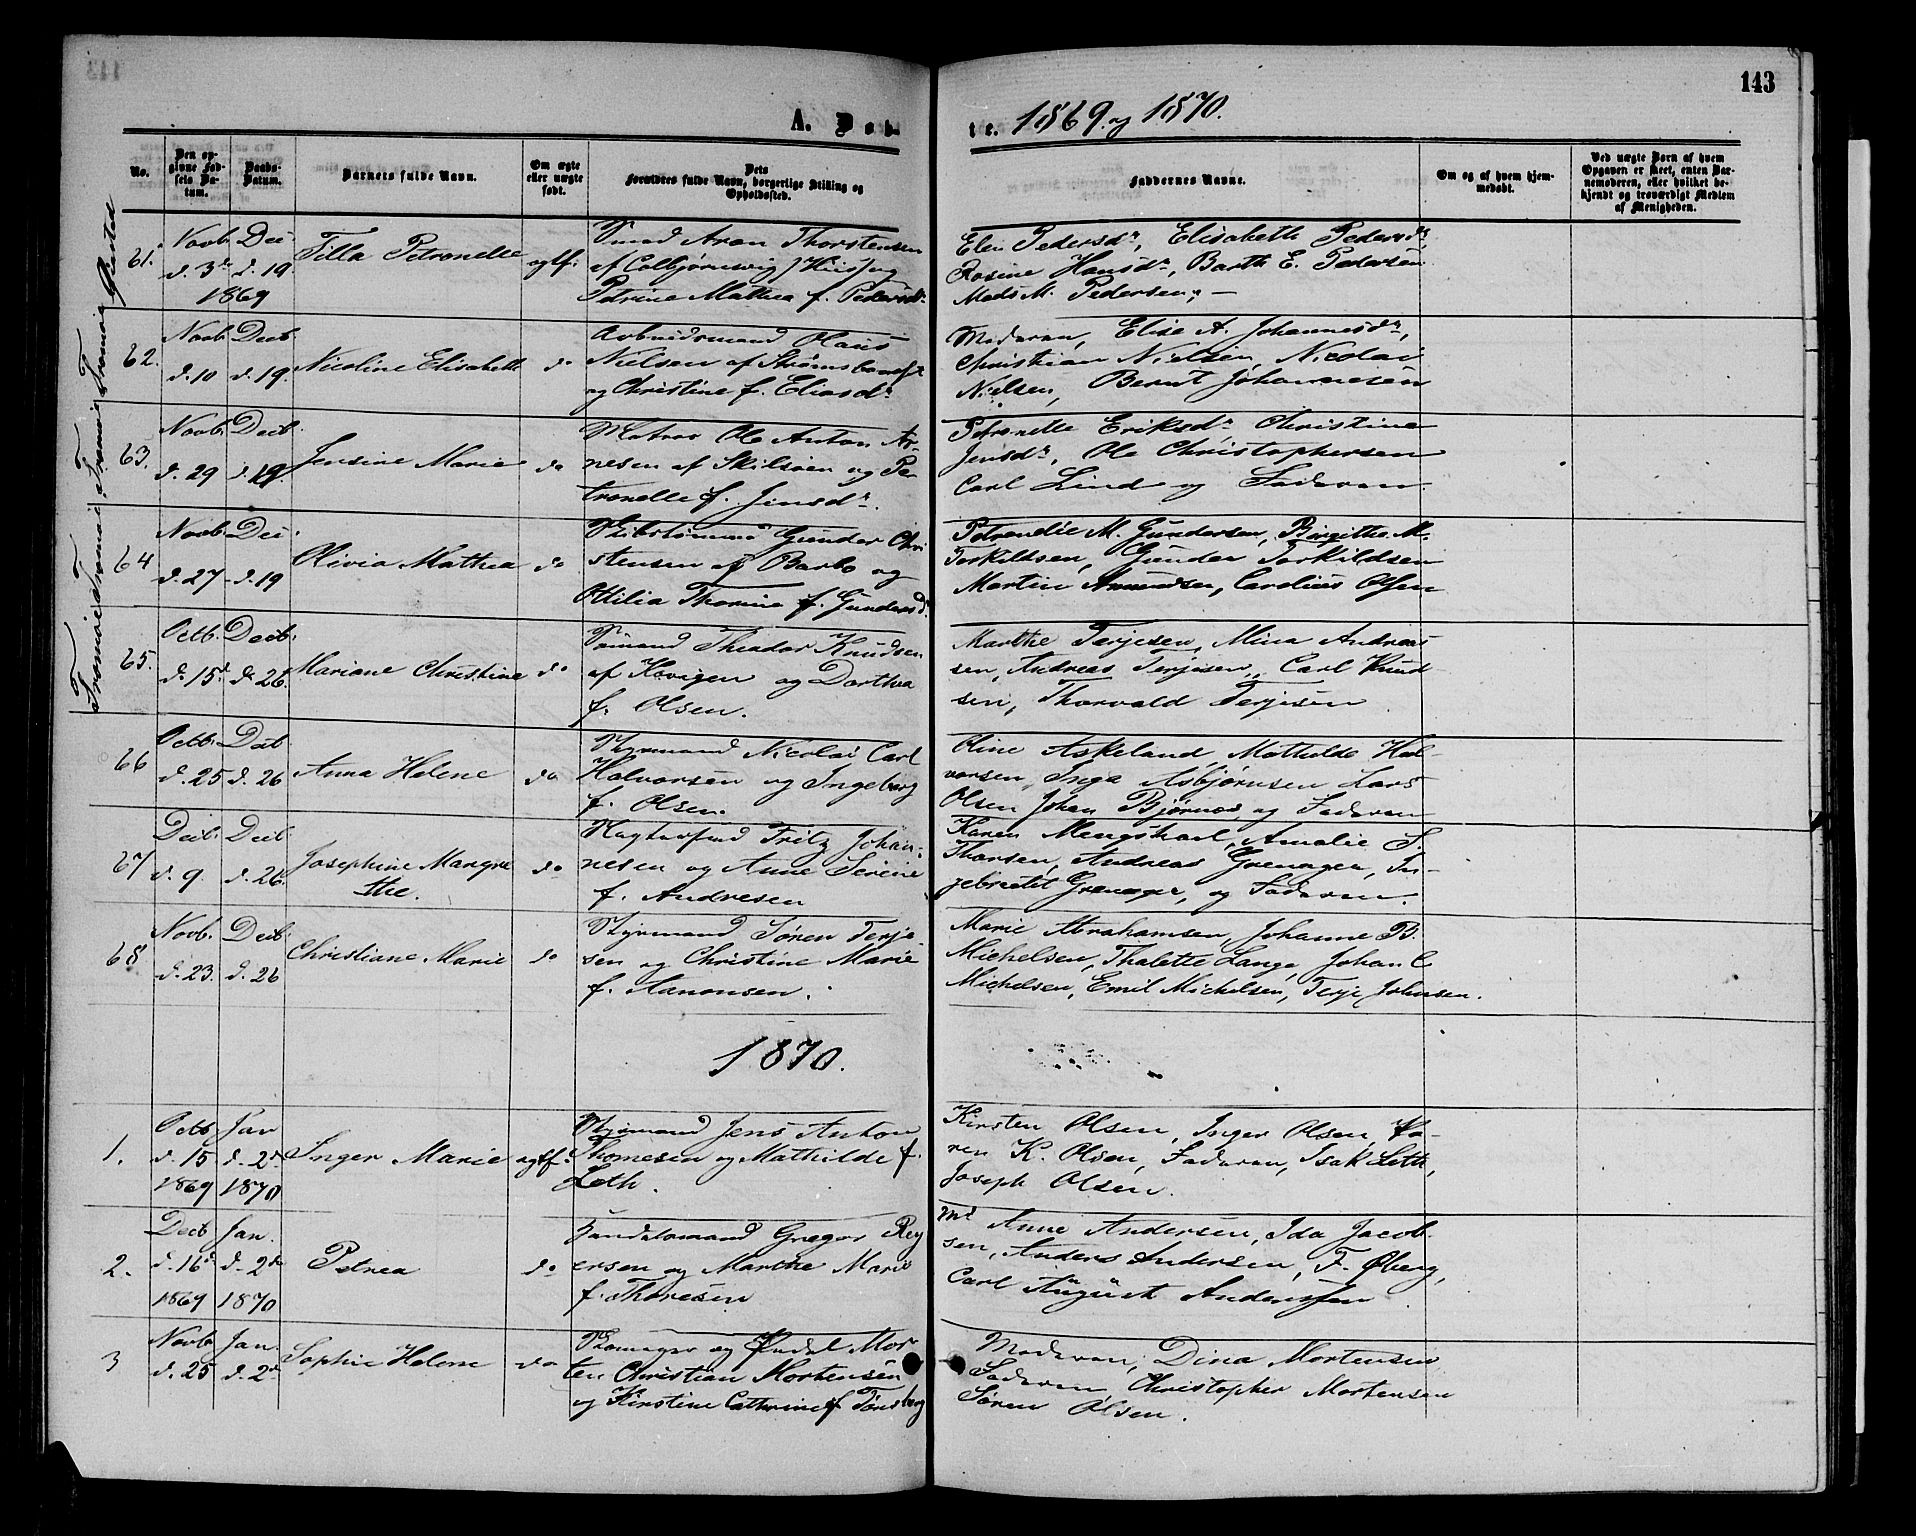 143
A. Døbte. 1869. og 1870.
No.
Den opgivne Fødsels Datum.
Daabs-Datum.
Barnets fulde Navn.
Om ægte eller uægte født.
Dets Forældres fulde Navn, borgerlige Stilling og Opholdssted.
Faddernes Navne.
Om og af hvem hjemmedøbt.
Ved uægte Børn af hvem Opgaven er skeet, enten Barnemoderen, eller hvilket bekjendt og troværdigt Medlem af Menigheden.
61. Novb. d. 3d 1869 Dec d. 19 Tilla Petronelle egtf:
Aron Thorstensen
af Colbjørnsvig og
Petrine Mathea f. Pedersdr
Elen Pedersdr, Elisabeth Pedersdr,
Rosine Hansdr, Barth E. Pedersen
Mads M. Pedersen, –
62. Novb d. 10 Decb. d. 19. Nicoline Elisabeth do
Arbeidsmand Olaus
Nielsen af Strømsboe
og Christine f. Eliasdr
Moderen, Elise A. Johannesdr,
Christian Nielsen, Nicolai
Nielsen, Bernt Johannesen
63. Novb. d. 29 Decb. d. 19. Jensine Marie do
Matros Ole Anton Ar-
nesen af Skilsøen og Pe-
tronelle f. Jensdr.
Petronelle Eriksdr Christine
Jensdr, Ole Christophersen
Carl Lind og Faderen.
64 Novb d. 27 Dec. d. 19 Olivia Mathea do
Skibstømmd Gunder Chri
stensen af Barbo og
Ottilia Thomine f. Gundersdr
Petronelle M. Gundersen, Birgithe M.
Torkildsen, Gunder Torkildsen
Martin Amundsen, Carolius Olsen
65. Octb. d. 15d Decb. d. 26. Mariane Christine do
Sømand Theodor Knudsen
af Havigen og Dorthea
f. Olsen.
Marthe Terjesen, Mina Andreas
sen, Andreas Terjesen, Carl Knud-
sen, Thorvald Terjesen
66 Octb. d. 25 Decb d. 26 Anna Helene do
Styrmand Nicolai Carl
Halvorsen og Ingeborg
f. Olsen.
Oline Askeland, Mathilde Hal-
vorsen, Inga Asbjørnsen Lars
Olsen Johan Bjørnes og Faderen
67 Decb. d. 9. Decb d. 26. Josephine Margre
the. do
Fritz Johan-
nesen og Anne Serine
f. Andresen
Karen Mengshoel, Amalie S.
Thorsen, Andreas Grenager, In-
gebretht Grenager, og Faderen.
68 Novb. d. 23. Decb d. 26 Christiane Marie do
Styrmand Søren Terje-
sen og Christine Marie
f. Aanonsen.
Marie Abrahamsen, Johanne B.
Michelsen, Thalette Lange, Johan C
Michelsen, Emil Michelsen, Terje Johnsen.
1870.
1. Octb d. 15 1869 Jan d. 2d 1870 Inger Marie egtf:
Styrmand Jens Anton
Thomesen og Mathilde f.
Leth.
Kirsten Olsen, Inger Olsen, Ka-
ren K. Olsen, Faderen, Isak Leth,
Joseph Olsen.
2. Decb d. 16d 1869 Jan. d. 2d 1870 Petrea do
Handelsmand Gregor Rey
ersen og Marthe Marie
f. Thoresen
Md Anne Andersen, Ida Jacob-
sen, Anders Andersen, F. Øberg,
Carl August Anderssen
3 Novb d. 25 Jan. d. 2d Sophie Helene do
Skomager og Mor
ten Christian Mortensen
og Kirstine Cathrine f Tønsberg
Moderen, Dina Mortensen
Faderen, Christopher Mortensen
Søren Olsen.
Tromøe Tromøe Tromøe Tromøe Øiestad